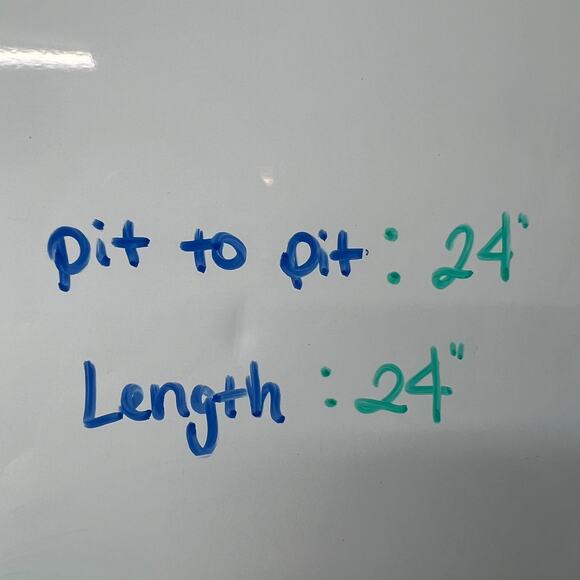 pit to pit : 24"
Length : 24"